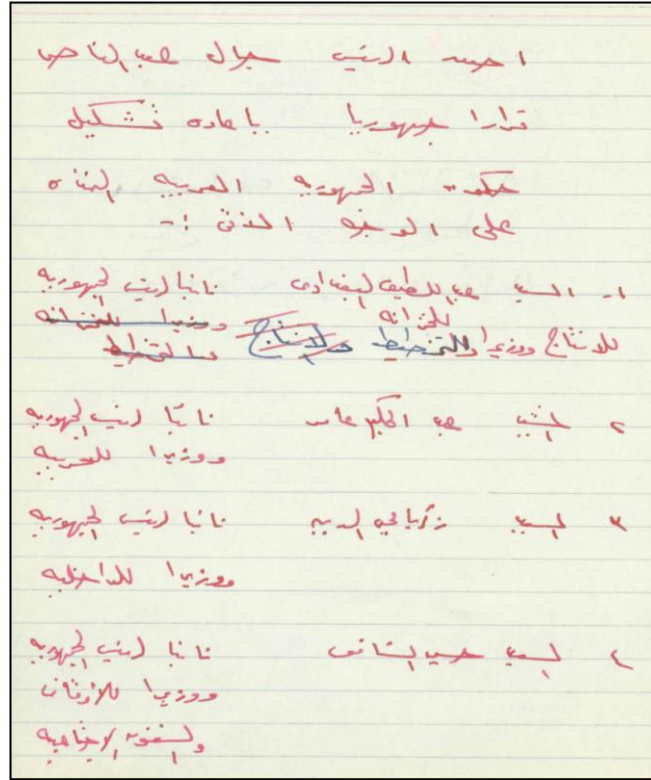 اصدر الرئيس جمال عبد الناصر
قرارا جمهوريا باعاده تشكيل
حكومة الجمهوريه العربيه المتحده
على الوجه الاتى :-
١- السيد عبد اللطيف البغدادى نائبا لرئيس الجمهوريه
للخزانه ووزيرا للخزانه
للانتاج ووزيرا وللتخطيط وللانتاج والتخطيط
٢ المشير عبد الحكيم عامر نائبا لرئيس الجمهوريه
ووزيرا للحربيه
٣ السيد زكريا محي الدين نائبا لرئيس الجمهوريه
ووزيرا للداخليه
٤ السيد حسين الشافعى نائبا لرئيس الجمهوريه
ووزيرا للاوقاف
والشئون الاجتماعيه